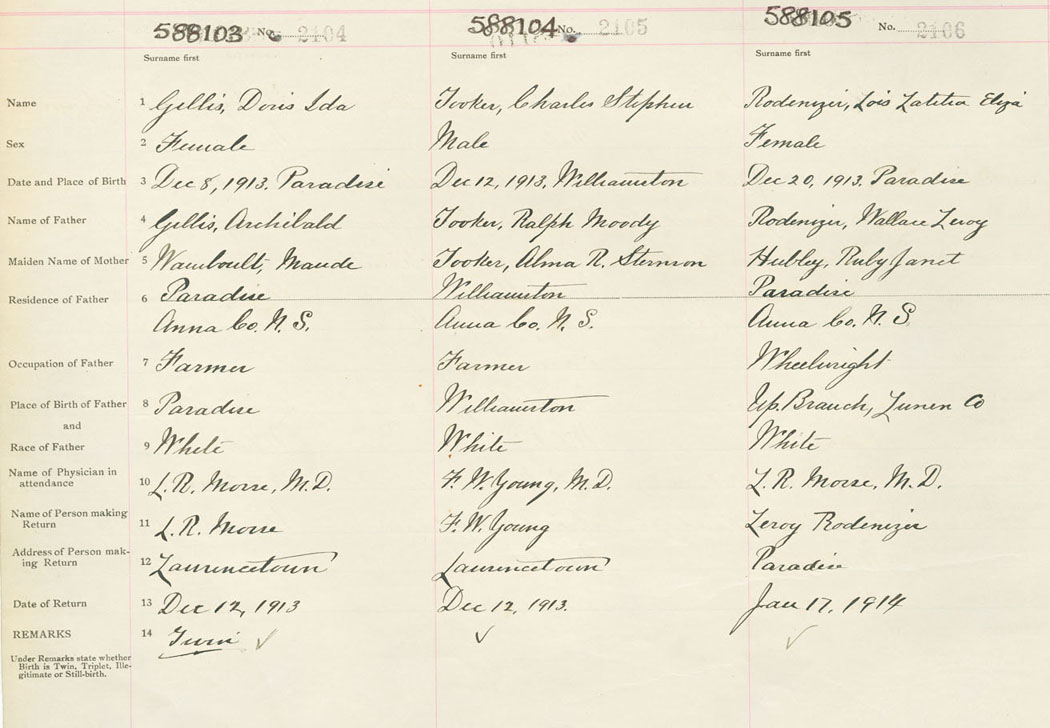 588103 No. 2104 588104 No. 2105 588105 No. 2106
Surname first Surname first Surname first
Name 1 Gillis, Doris Ida Tooker, Charles Stephen Rodenizir, Lois Latitia Eliza
Sex 2 Female Male Female
Date and Place of Birth 3 Dec 8, 1913. Paradise Dec 12, 1913. Williamston Dec 20, 1913. Paradise
Name of Father 4 Gillis, Archibald Tooker, Ralph Moody Rodenizir, Wallace Leroy
Maiden Name of Mother 5 Wamboult, Maude Tooker, Alma R. Hubley, Ruby Janet
Residence of Father 6 Paradise Williamston Paradise
Anna Co. N. S. Anna Co. N. S. Anna Co. N. S
Occupation of Father 7 Farmer Farmer Wheelwright
Place of Birth of Father 8 Paradise Williamston Up. Branch, Lunen Co
and
Race of Father 9 White White White
Name of Physician in
attendance 10 L. R. Morse, M. D. F. W. Young, M. D. L. R. Morse, M. D.
Name of Person making
Return 11 L. R. Morse F. W. Young Leroy Rodenizir
Address of Person mak-
ing Return 12 Laurencetown Laurencetown Paradise
Date of Return 13 Dec 12, 1913 Dec 12, 1913. Jan 17, 1914
REMARKS 14 Twin ✓ ✓ ✓
Under Remarks state whether
Birth is Twin, Triplet, Ille-
gitimate or Still-birth.